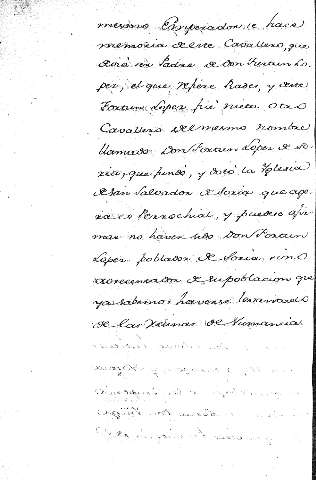 mesmo Emperador, se hace
memoria de este Cavallero, que
seria Padre de Don Fortun Lo
pez; el que refiere Rades, y de este
Fortun Lopez fué nieto otro
Cavallero del mesmo nombre
llamado Don Fortun Lopez de So
ria, que fundó, y dotó la Yglesia
de San Salvador de Soria que aora
es Perrochial, y puedese afir
mar no haver sido Don Fortun
Lopez poblador de Soria, sino
acrecentador de su poblacion que
ya sabemos haverse levantado
de las Ruinas de Numancia